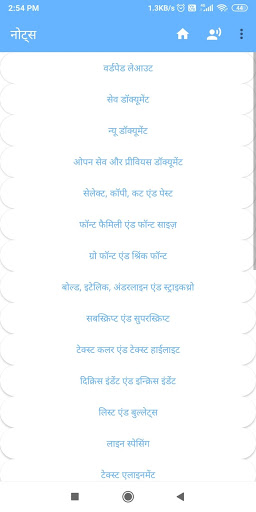 2:54 PM
1.3KB/s
44
नोट्स
वर्डपैड लेआउट
सेव डॉक्यूमेंट
न्यू डॉक्यूमेंट
ओपन सेव और प्रीवियस डॉक्यूमेंट
सेलेक्ट, कॉपी, कट एंड पेस्ट
फॉन्ट फैमिली एंड फॉन्ट साइज़
ग्रो फॉन्ट एंड श्रिंक फॉन्ट
बोल्ड, इटेलिक, अंडरलाइन एंड स्ट्राइकथ्रो
सबस्क्रिप्ट एंड सुपरस्क्रिप्ट
टेक्स्ट कलर एंड टेक्स्ट हाईलाइट
दिक्रिस इंडेंट एंड इन्क्रिस इंडेंट
लिस्ट एंड बुल्लेट्स
लाइन स्पेसिंग
टेक्स्ट एलाइनमेंट